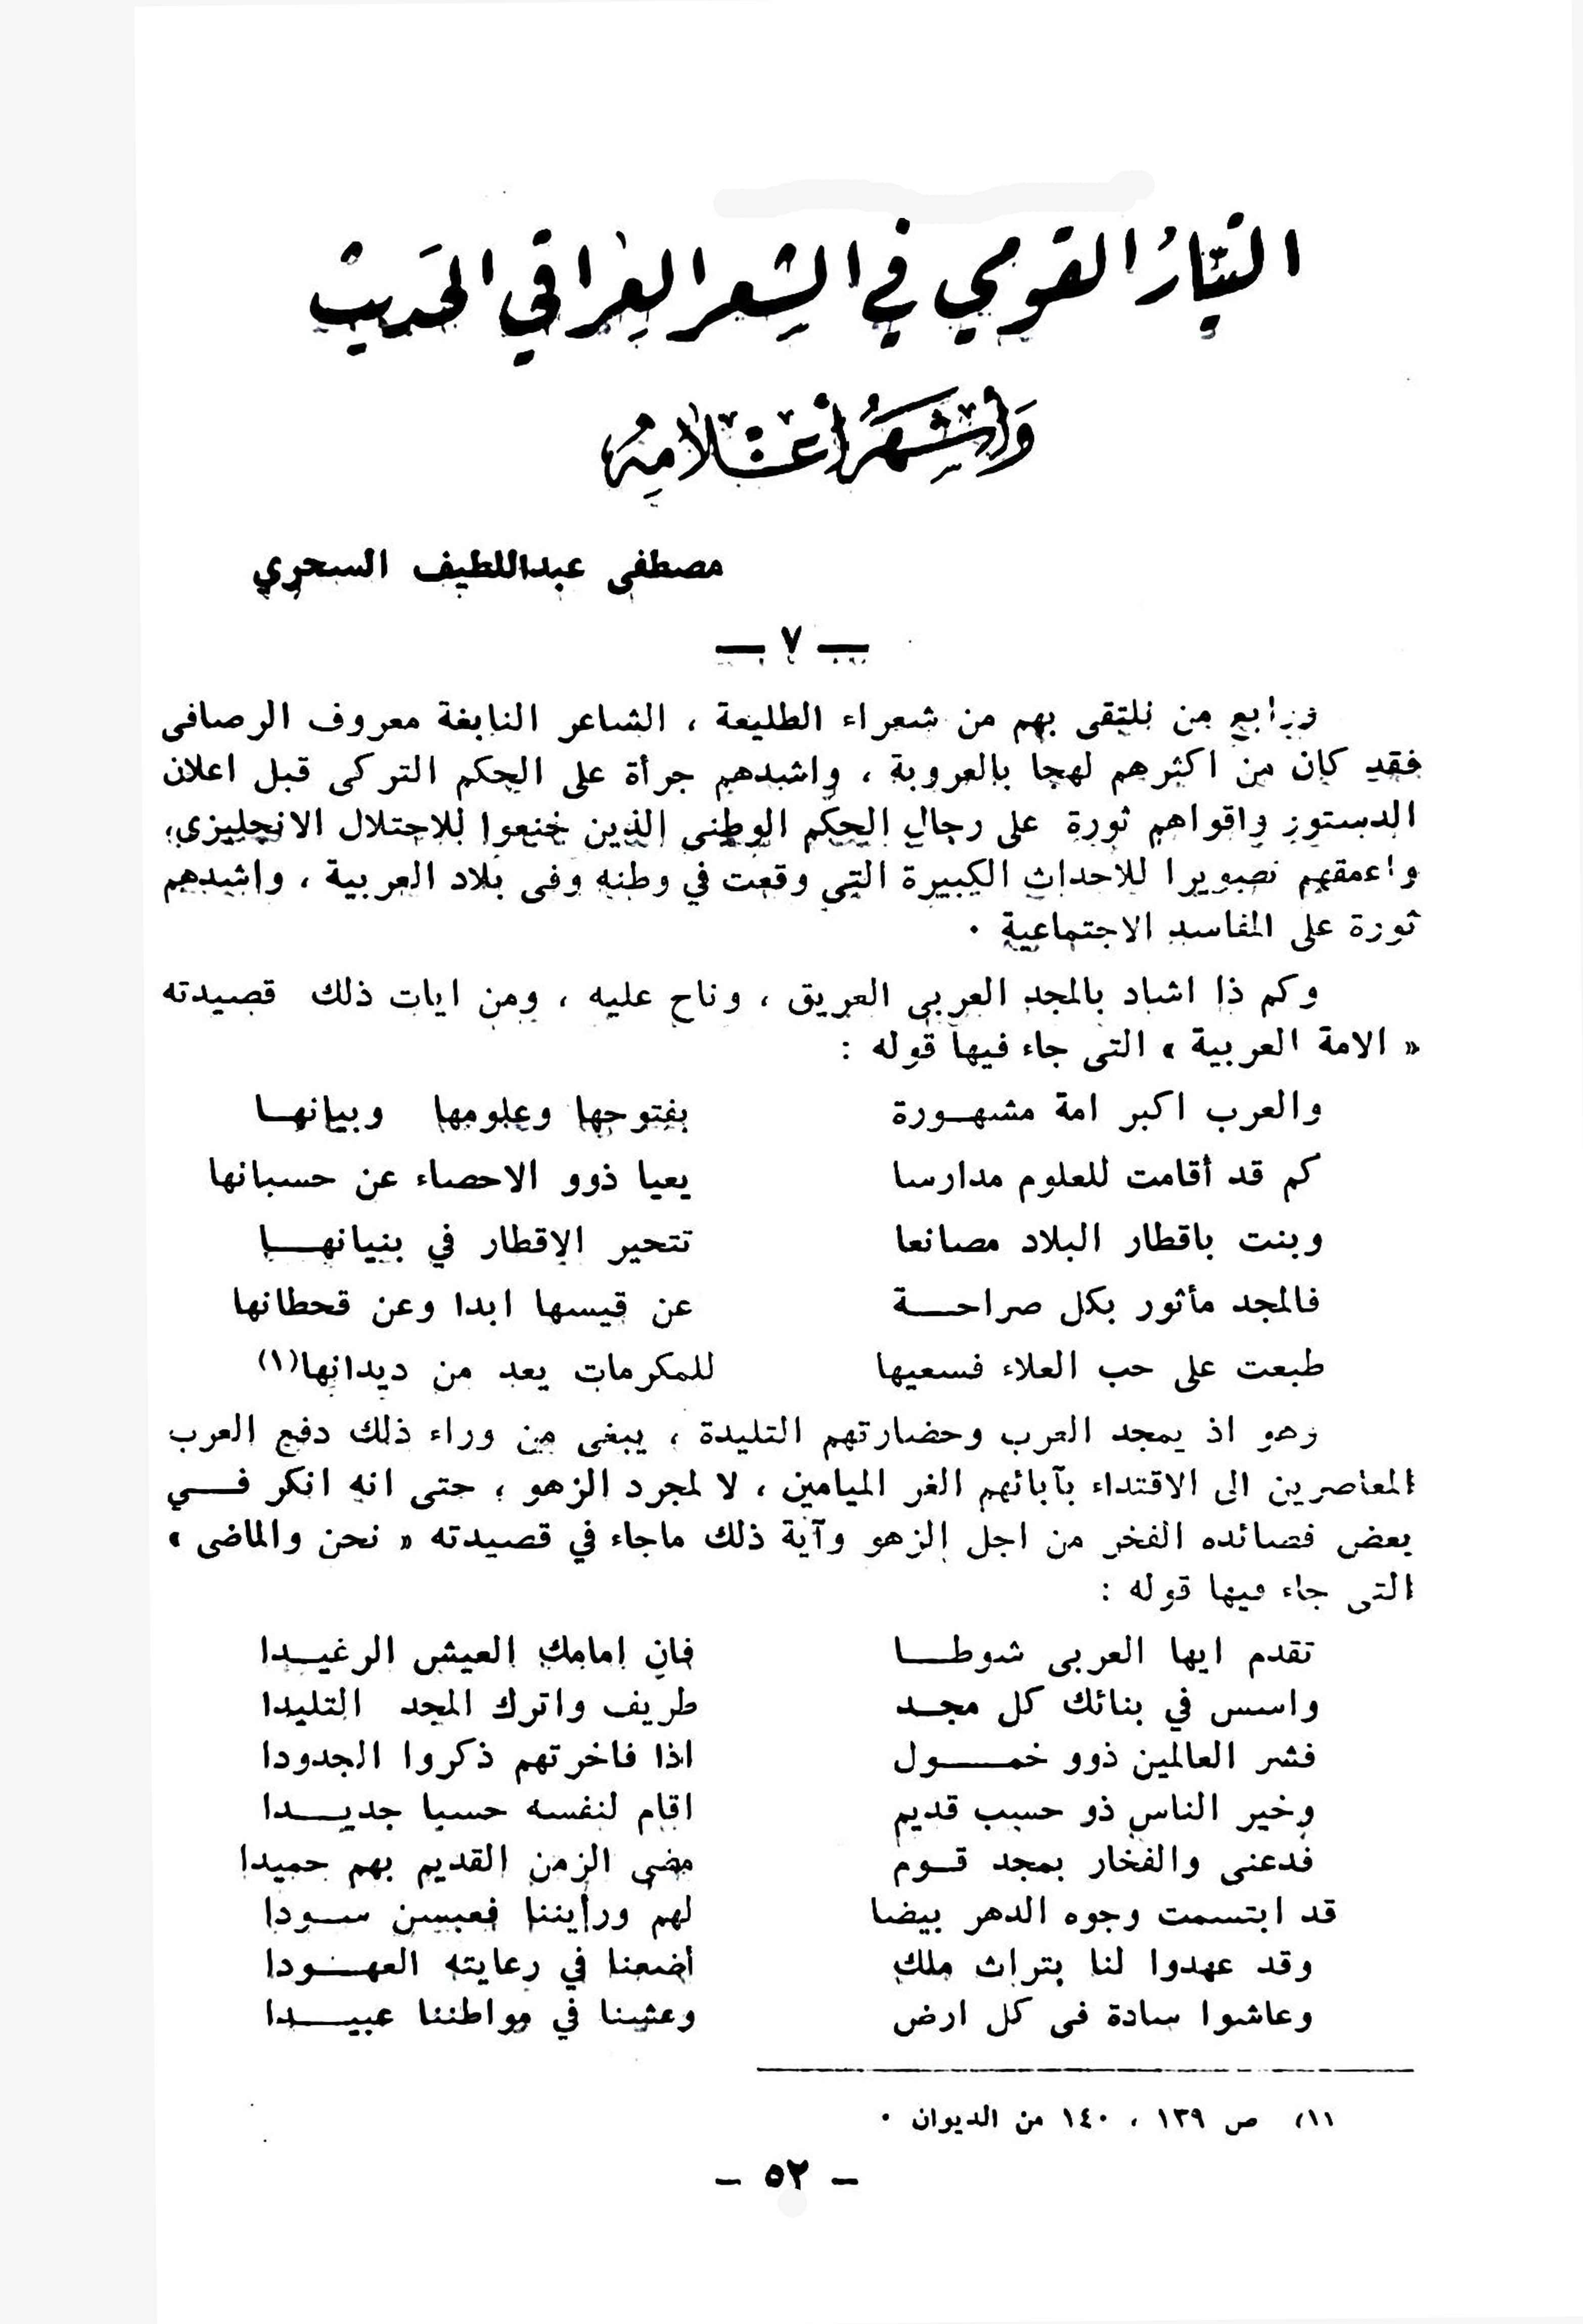 التيّارُ القومي في الشِعر العِراقي الحَديثْ
وَأشهَرُ أعْلامِهُ
مصطفى عبداللطيف السحري
— ٧ —
ورابع من نلتقى بهم من شعراء الطليعة ، الشاعر النابغة معروف الرصافى
فقد كان من اكثرهم لهجا بالعروبة ، واشدهم جرأة على الحكم التركى قبل اعلان
الدستور واقواهم ثورة على رجال الحكم الوطنى الذين خنعوا للاحتلال الانجليزى،
واعمقهم تصويرا للاحداث الكبيرة التى وقعت في وطنه وفى بلاد العربية ، واشدهم
ثورة على المفاسد الاجتماعية ٠
وكم ذا اشاد بالمجد العربى العريق ، وناح عليه ، ومن ايات ذلك قصيدته
« الامة العربية » التى جاء فيها قوله :
والعرب اكبر امة مشهـــورة بفتوحها وعلومها وبيانهــا
كم قد أقامت للعلوم مدارسا يعيا ذوو الاحصاء عن حسبانها
وبنت باقطار البلاد مصانعا تتحير الاقطار في بنيانهـــا
فالمجد مأثور بكل صراحـــة عن قيسها ابدا وعن قحطانها
طبعت على حب العلاء فسعيها للمكرمات يعد من ديدانها(١)
وهو اذ يمجد العرب وحضارتهم التليدة ، يبغى من وراء ذلك دفع العرب
المعاصرين الى الاقتداء بآبائهم الغر الميامين ، لا لمجرد الزهو ، حتى انه انكر فـــي
بعض قصائده الفخر من اجل الزهو وآية ذلك ماجاء في قصيدته « نحن والماضى »
التى جاء فيها قوله :
تقدم ايها العربى شوطـــا فان امامك العيش الرغيــدا
واسس في بنائك كل مجـد طريف واترك المجد التليدا
فشر العالمين ذوو خمـــــول اذا فاخرتهم ذكروا الجدودا
وخير الناس ذو حسب قديم اقام لنفسه حسبا جديـــدا
فدعنى والفخار بمجد قــوم مضى الزمن القديم بهم حميدا
قد ابتسمت وجوه الدهر بيضا لهم ورأيننا فعبسن ســودا
وقد عهدوا لنا بتراث ملك أضعنا في رعايته العهــودا
وعاشوا سادة فى كل ارض وعشنا في مواطننا عبيـــدا
(١) ص ١٣٩ ، ١٤٠ من الديوان ٠
– ٥٢ –